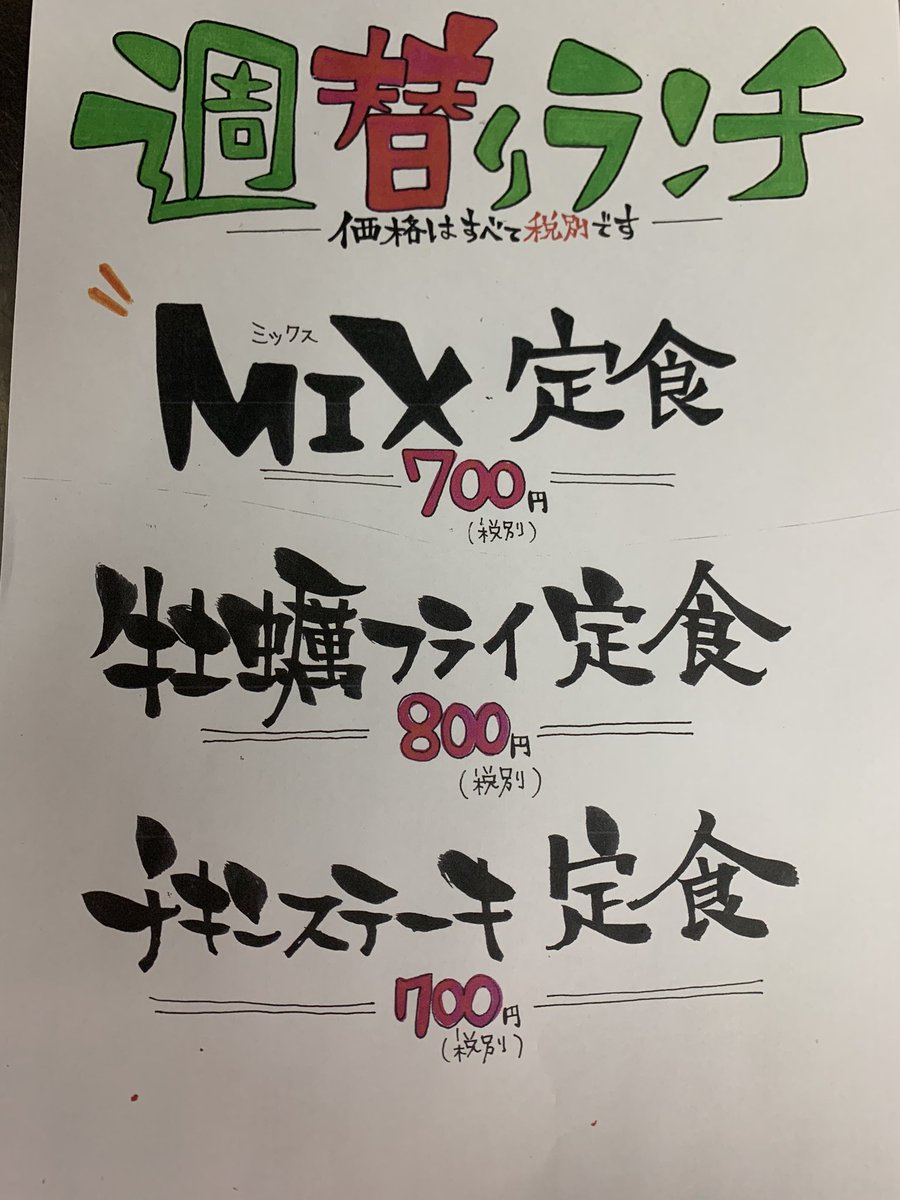 週替りランチ
価格はすべて税別です
ミックス
MIX 定食
700円
(税別)
牡蠣フライ定食
800円
(税別)
チキンステーキ定食
700円
(税別)